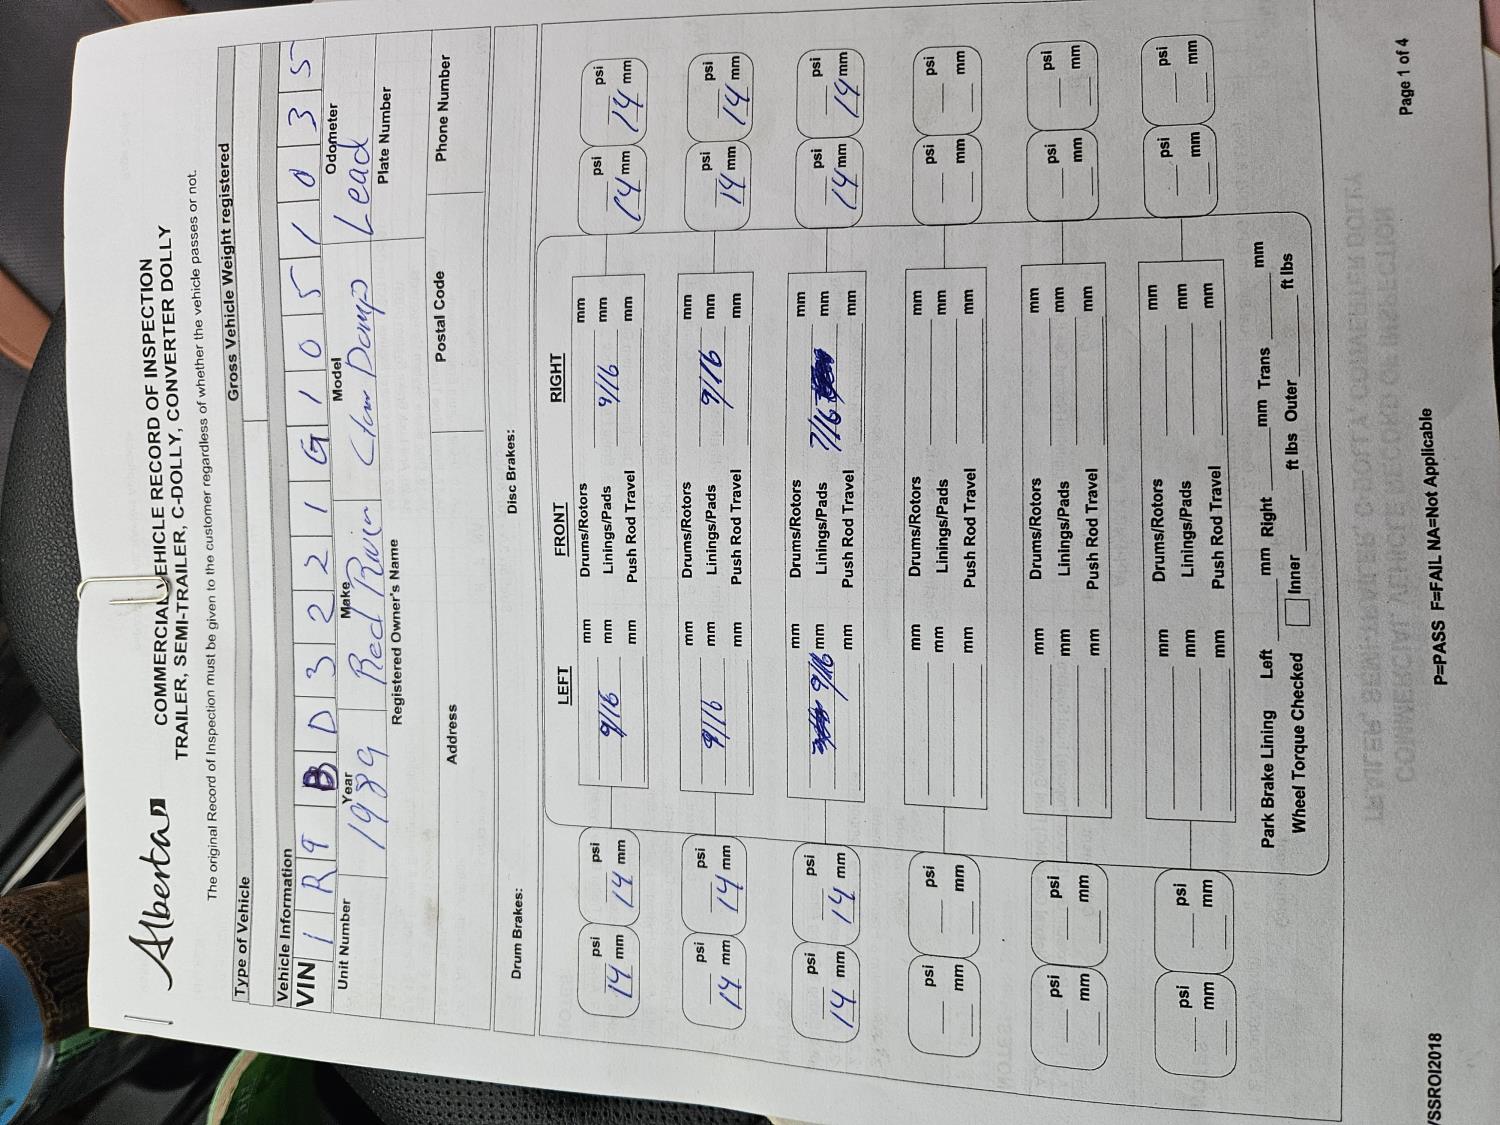 Alberta
COMMERCIAL VEHICLE RECORD OF INSPECTION
TRAILER, SEMI-TRAILER, C-DOLLY, CONVERTER DOLLY
The original Record of Inspection must be given to the customer regardless of whether the vehicle passes or not.
Type of Vehicle Gross Vehicle Weight registered
Vehicle Information
VIN 1 R 9 B D 3 2 2 1 G 1 0 5 1 0 3 5
Unit Number Year Make Model Odometer
1989 Red River Clam Damp Lead
Registered Owner's Name Plate Number
Address Postal Code Phone Number
Drum Brakes: Disc Brakes:
LEFT FRONT RIGHT
psi psi mm Drums/Rotors mm psi psi
14 mm 14 mm 9/16 mm Linings/Pads 9/16 mm 14 mm 14 mm
mm Push Rod Travel mm
psi psi mm Drums/Rotors mm psi psi
14 mm 14 mm 9/16 mm Linings/Pads 9/16 mm 14 mm 14 mm
mm Push Rod Travel mm
psi psi mm Drums/Rotors mm psi psi
14 mm 14 mm 9/16 mm Linings/Pads 7/16 mm 14 mm 14 mm
mm Push Rod Travel mm
psi psi mm Drums/Rotors mm psi psi
mm mm mm Linings/Pads mm mm mm
mm Push Rod Travel mm
psi psi mm Drums/Rotors mm psi psi
mm mm mm Linings/Pads mm mm mm
mm Push Rod Travel mm
psi psi mm Drums/Rotors mm psi psi
mm mm mm Linings/Pads mm mm mm
mm Push Rod Travel mm
Park Brake Lining Left mm Right mm Trans mm
Wheel Torque Checked Inner ft lbs Outer ft lbs
P=PASS F=FAIL NA=Not Applicable
VSSROI2018 Page 1 of 4